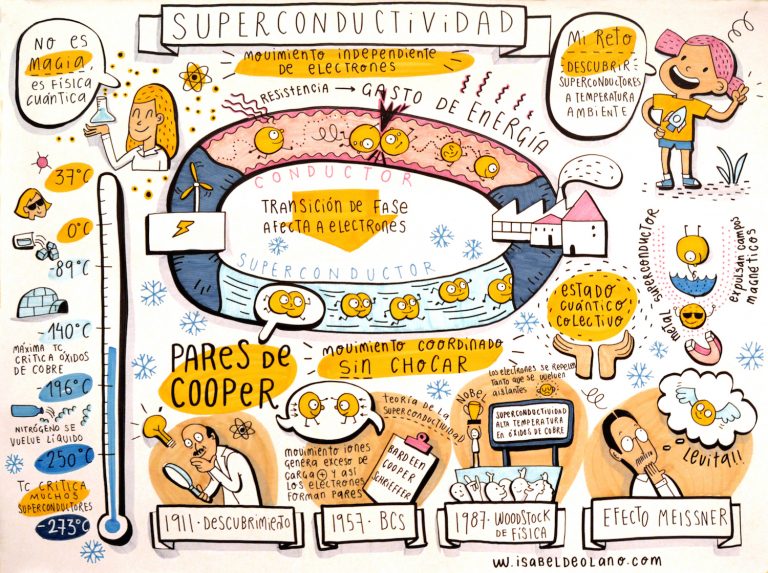 SUPERCONDUCTIVIDAD
NO ES
MAGIA,
ES FÍSICA
CUÁNTICA
MOVIMIENTO INDEPENDIENTE
DE ELECTRONES
RESISTENCIA → GASTO DE ENERGÍA
MI RETO
DESCUBRIR
SUPERCONDUCTORES
A TEMPERATURA
AMBIENTE
CONDUCTOR
TRANSICIÓN DE FASE
AFECTA A ELECTRONES
SUPERCONDUCTOR
37°C
0°C
-89°C
-140°C
MÁXIMA TC
CRÍTICA ÓXIDOS
DE COBRE
-196°C
NITRÓGENO SE
VUELVE LÍQUIDO
-250°C
TC CRÍTICA
MUCHOS
SUPERCONDUCTORES
-273°C
PARES DE
COOPER
MOVIMIENTO COORDINADO
SIN CHOCAR
ESTADO
CUÁNTICO
COLECTIVO
SUPERCONDUCTOR
EXPULSAN CAMPOS
MAGNÉTICOS
METAL
TEORÍA DE LA
SUPERCONDUCTIVIDAD
MOVIMIENTO IONES
GENERA EXCESO DE
CARGA + Y ASÍ
LOS ELECTRONES
FORMAN PARES
BARDEEN
COOPER
SCHRIEFFER
LOS ELECTRONES SE REPELEN
TANTO QUE SE VUELVEN
AISLANTES
NOBEL
SUPERCONDUCTIVIDAD
ALTA TEMPERATURA
EN ÓXIDOS DE COBRE
LEVITA!!
1911·DESCUBRIMIENTO
1957·BCS
1987·WOODSTOCK
DE FÍSICA
EFECTO MEISSNER
W.ISABELDEOLANO.COM